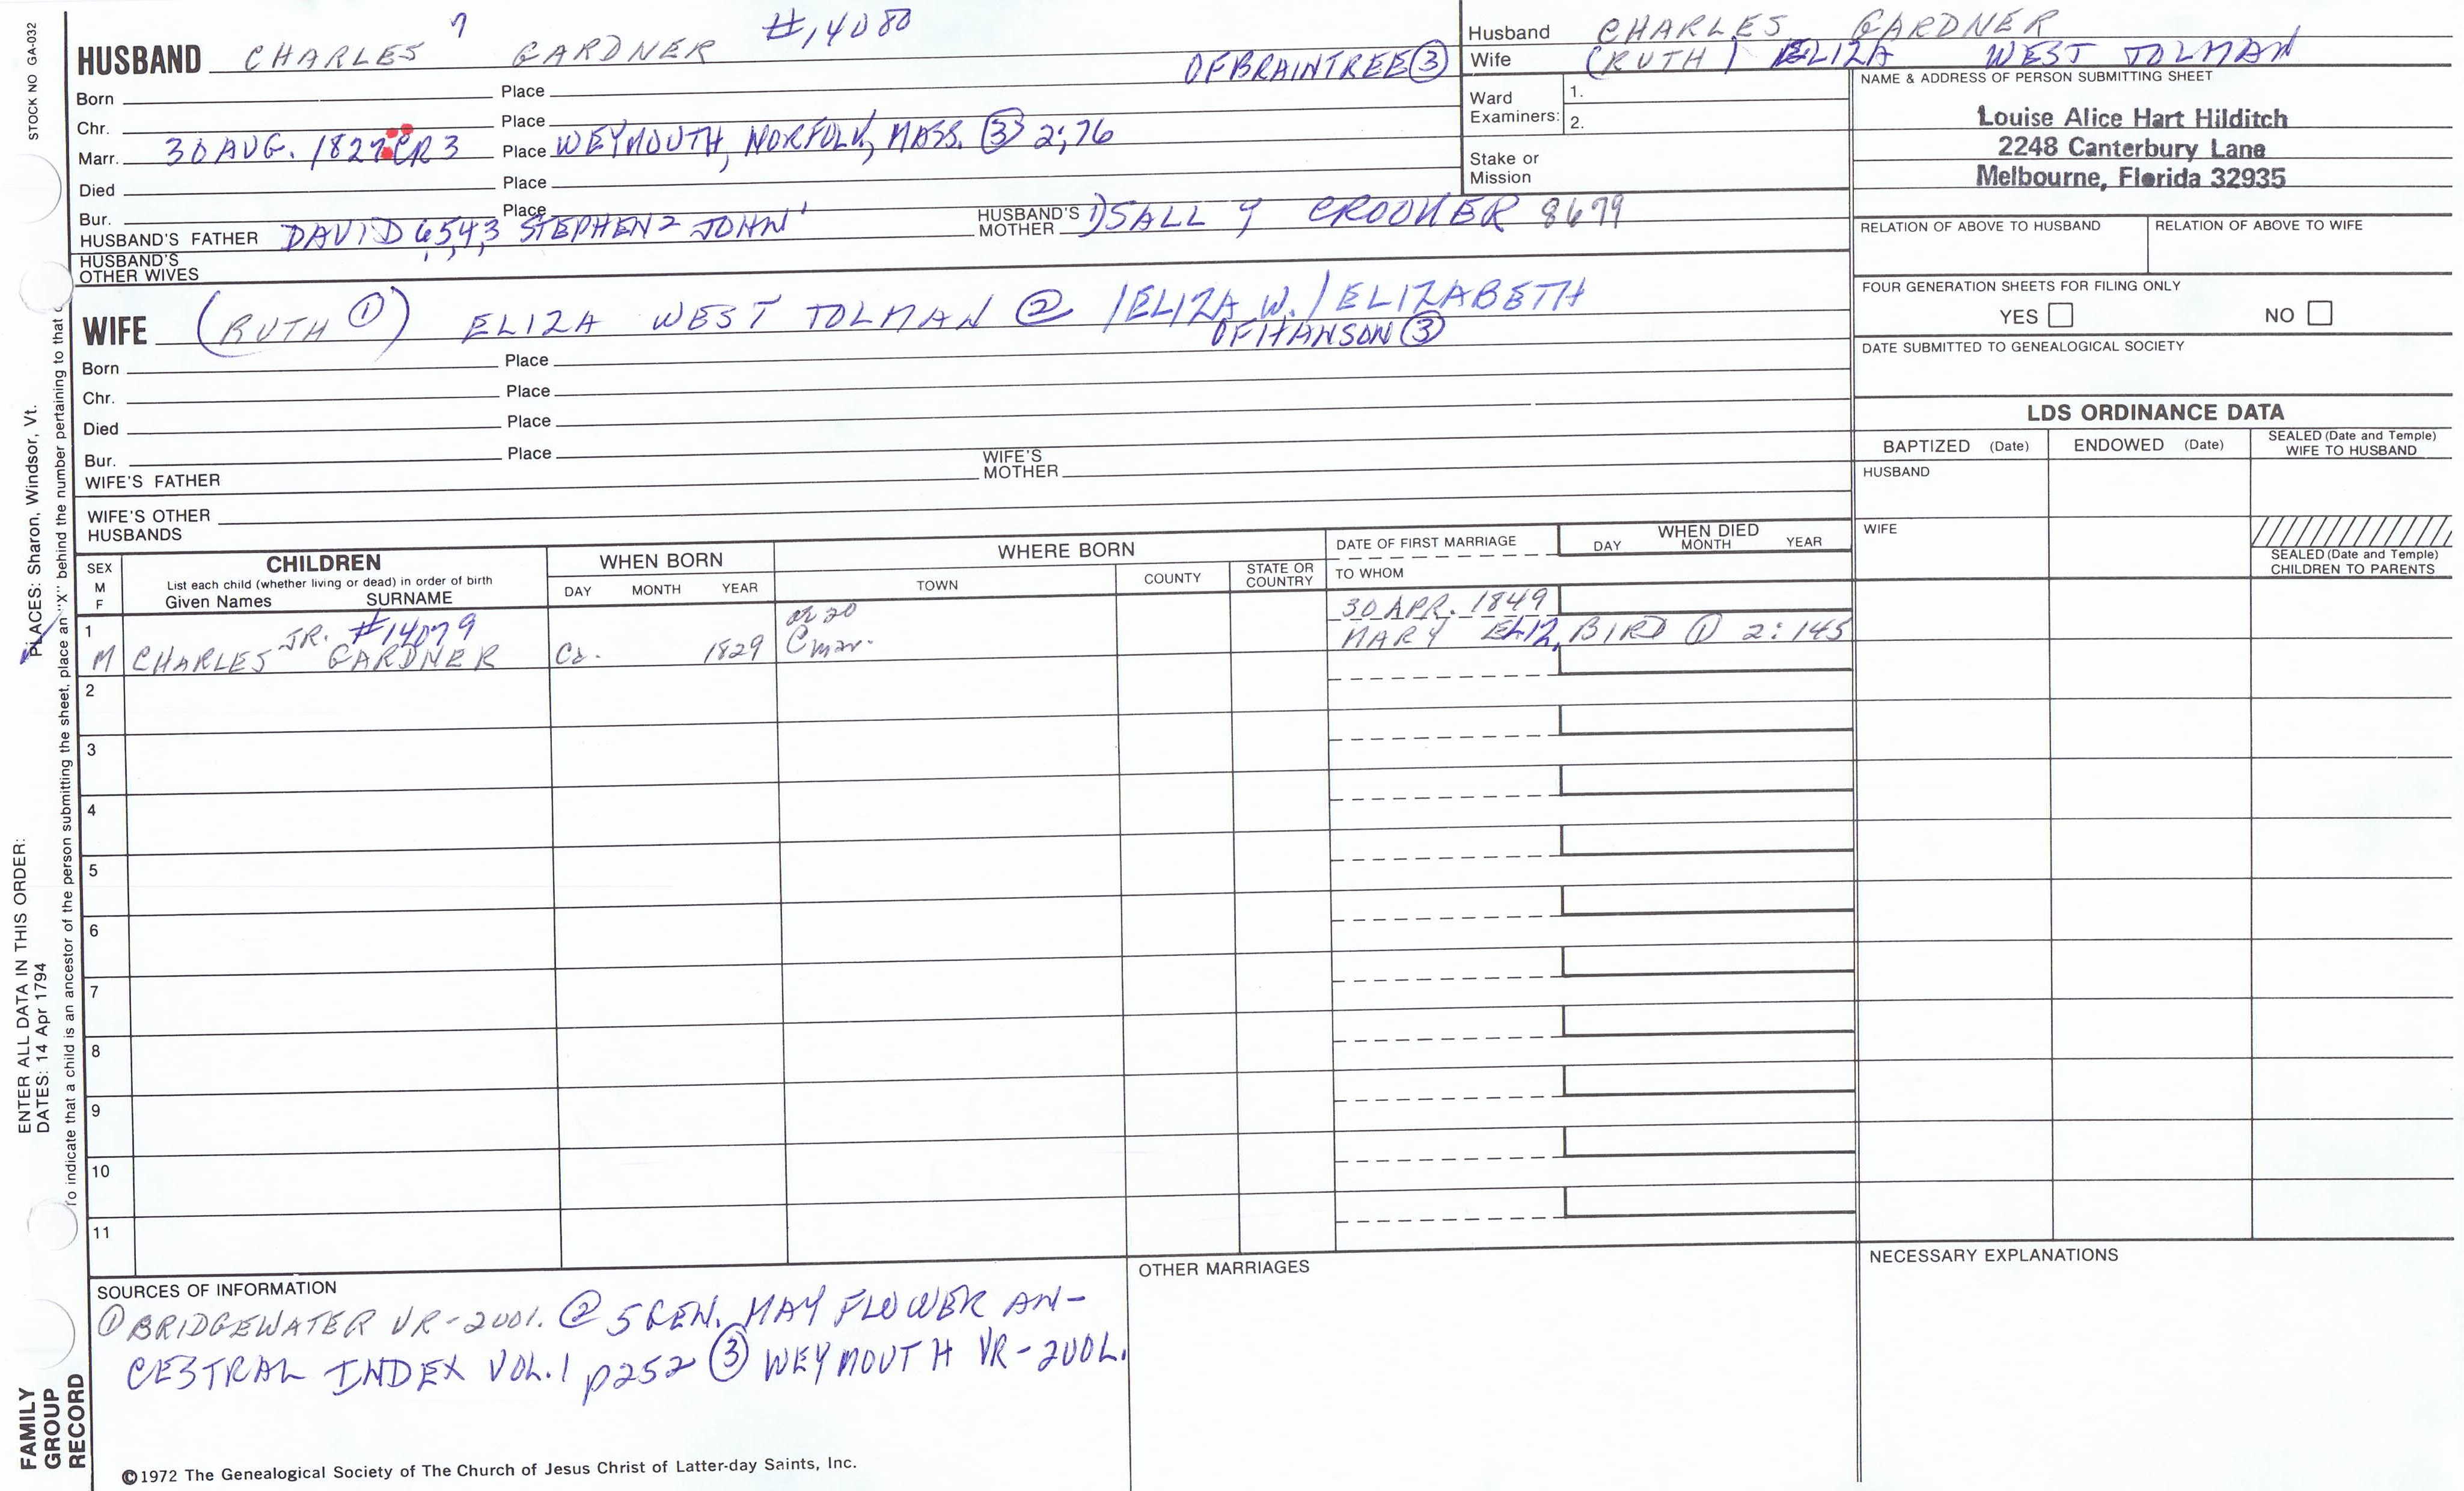 STOCK NO GA-032
HUSBAND CHARLES 7 GARDNER #14080
OF BRAINTREE ③
Born Place
Chr. Place
Marr. 30 AUG. 1827 CR 3 Place WEYMOUTH, NORFOLK, MASS. ③ 2:76
Died Place
Bur. Place
HUSBAND'S FATHER DAVID 6,5,4,3 STEPHEN 2 JOHN 1 HUSBAND'S MOTHER SALLY CROOKER 8679
HUSBAND'S OTHER WIVES
WIFE (RUTH ①) ELIZA WEST TOLMAN ② /ELIZA W./ELIZABETH
OF HANSON ③
Born Place
Chr. Place
Died Place
Bur. Place
WIFE'S FATHER WIFE'S MOTHER
WIFE'S OTHER HUSBANDS
Husband CHARLES GARDNER
Wife (RUTH) ELIZA WEST TOLMAN
Ward Examiners: 1.
2.
Stake or Mission
NAME & ADDRESS OF PERSON SUBMITTING SHEET
Louise Alice Hart Hilditch
2248 Canterbury Lane
Melbourne, Florida 32935
RELATION OF ABOVE TO HUSBAND RELATION OF ABOVE TO WIFE
FOUR GENERATION SHEETS FOR FILING ONLY
YES NO
DATE SUBMITTED TO GENEALOGICAL SOCIETY
LDS ORDINANCE DATA
BAPTIZED (Date) ENDOWED (Date) SEALED (Date and Temple) WIFE TO HUSBAND
HUSBAND
WIFE
SEALED (Date and Temple)
CHILDREN TO PARENTS
SEX
M
F
CHILDREN
List each child (whether living or dead) in order of birth
Given Names SURNAME
WHEN BORN
DAY MONTH YEAR
WHERE BORN
TOWN COUNTY STATE OR COUNTRY
DATE OF FIRST MARRIAGE
TO WHOM
WHEN DIED
DAY MONTH YEAR
1 M CHARLES JR. #14079 GARDNER Ca. 1829 ae 20 @ mar.
30 APR. 1849
MARY ELIZ. BIRD ① 2:145
2
3
4
5
6
7
8
9
10
11
SOURCES OF INFORMATION
① BRIDGEWATER VR-2VOL. ② 5 GEN. MAYFLOWER AN-
CESTRAL INDEX VOL.1 p252 ③ WEYMOUTH VR-2VOL.
OTHER MARRIAGES
NECESSARY EXPLANATIONS
©1972 The Genealogical Society of The Church of Jesus Christ of Latter-day Saints, Inc.
FAMILY
GROUP
RECORD
ENTER ALL DATA IN THIS ORDER:
DATES: 14 Apr 1794
PLACES: Sharon, Windsor, Vt.
To indicate that a child is an ancestor of the person submitting the sheet, place an "X" behind the number pertaining to that